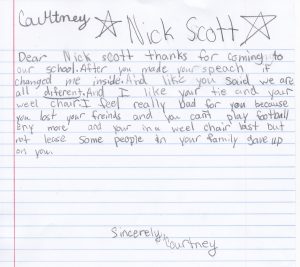 Courtney
Nick Scott
Dear Nick scott thanks for coming to
our school. After you made your speach it
changed me inside. And like you said we are
all different. And I like your tie and your
weel chair. I feel really bad for you because
you lost your freinds and you can't play football
eny more and your in a weel chair last but
not lease some people in your family gave up
on you.
Sincerely,
Courtney